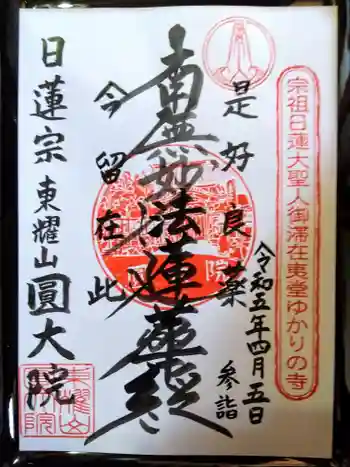 宗祖日蓮大聖人御滞在夷堂ゆかりの寺
令和五年四月五日
参詣
是好良薬
南無妙法蓮華経
今留在此
日蓮宗 東耀山 圓大院